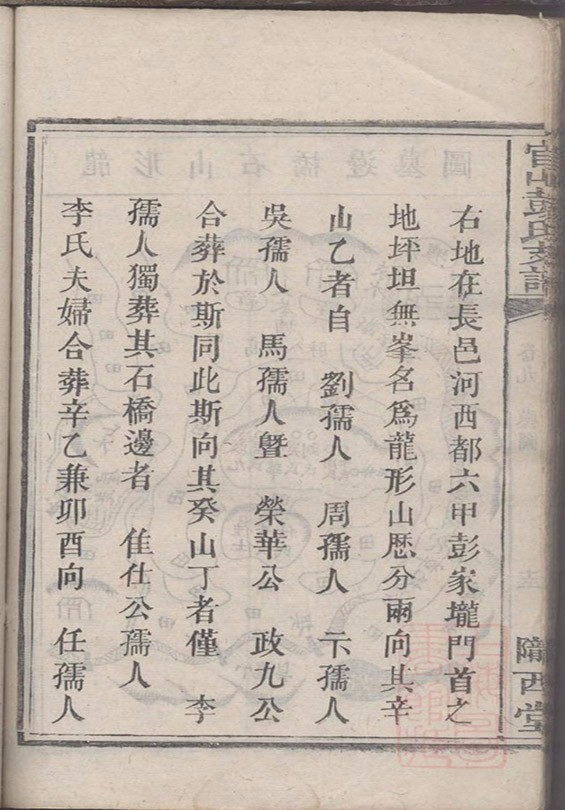 官山彭氏支譜
卷九
墓圖
隴西堂
右地在長邑河西都六甲彭家壠門首之
地坪坦無峯名爲龍形山歷分兩向其辛
山乙者自 劉孺人 周孺人 卞孺人
吳孺人 馬孺人曁 榮華公 政九公
合葬於斯同此斯向其癸山丁者僅 李
孺人獨葬其石橋邊者 隹仕公孺人
李氏夫婦合葬辛乙兼卯酉向 任孺人
圖墓邊橋石山形龍